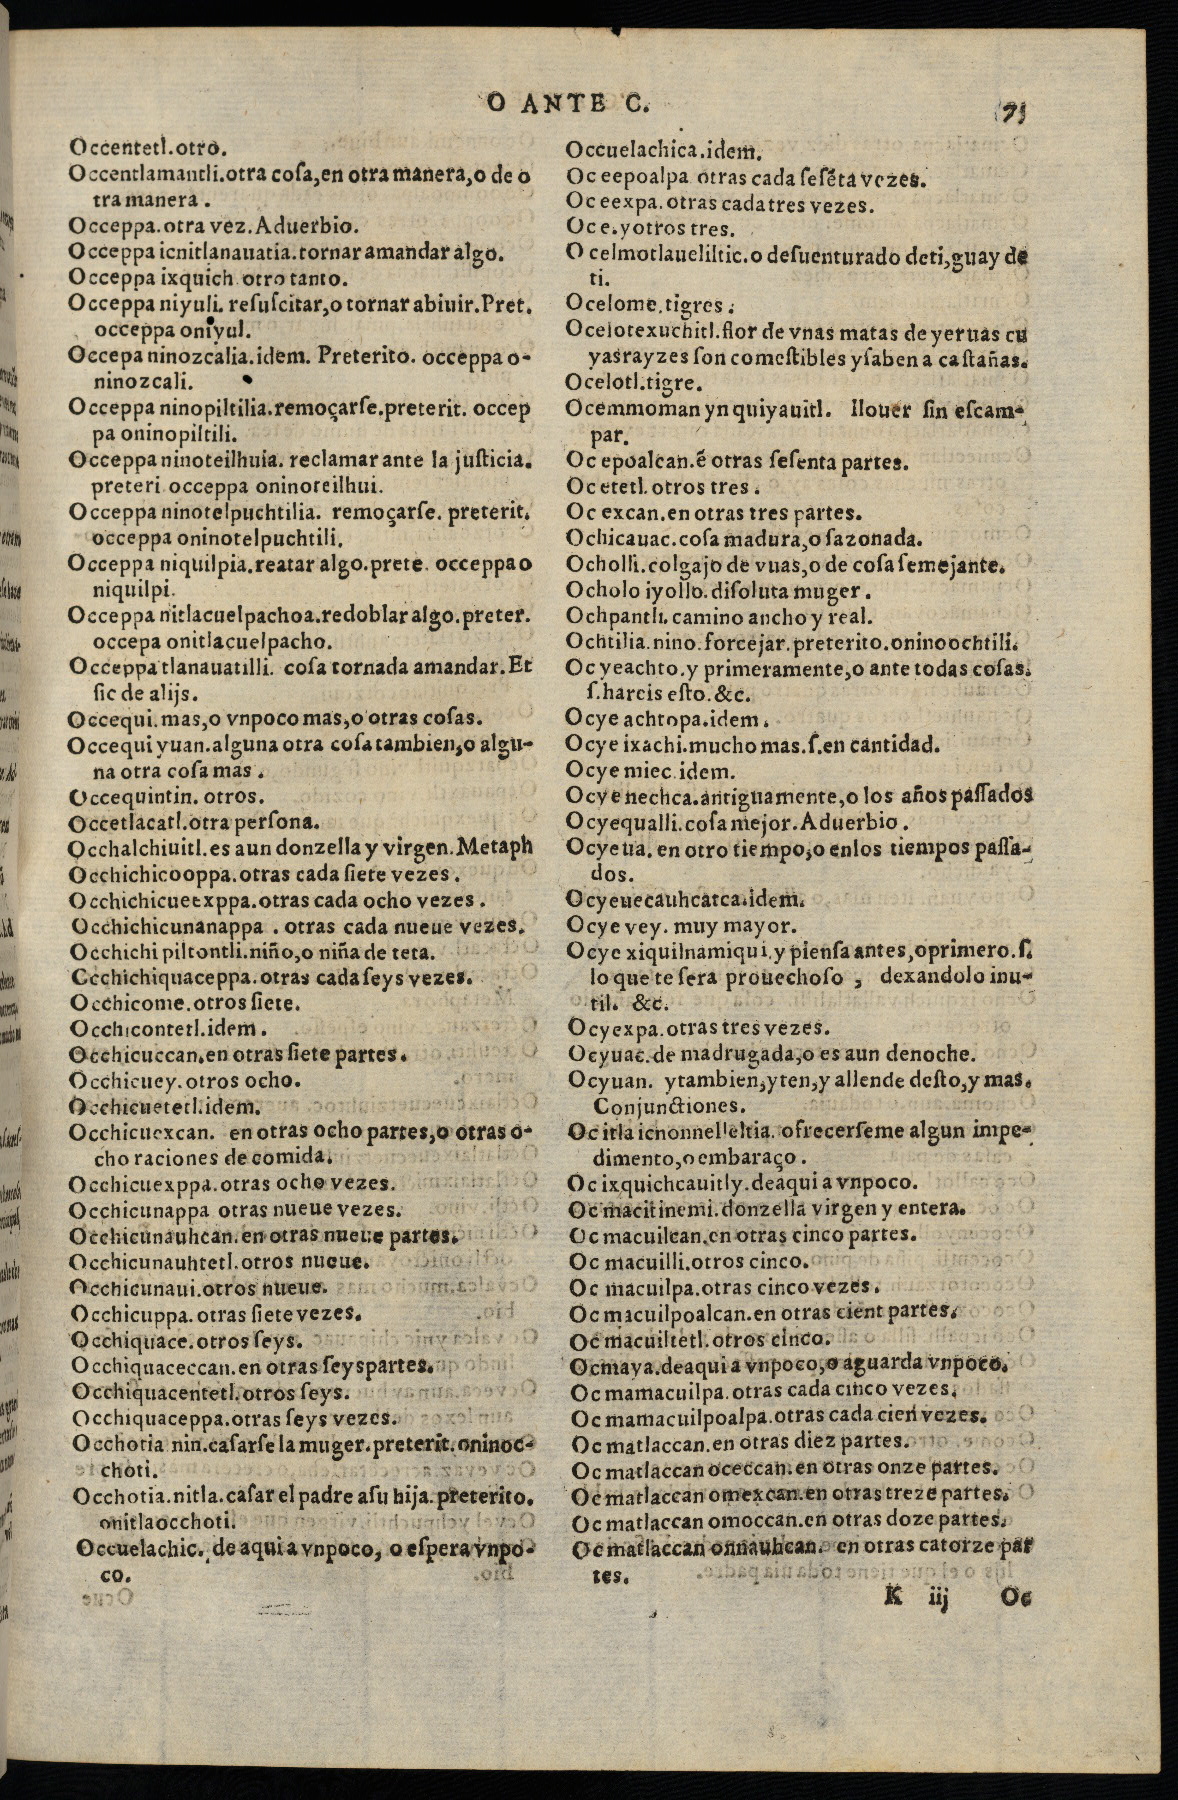 O ANTE C.
75
Occentetl.otro.
Occentlamantli.otra coſa,en otra manera,o de o
tra manera .
Occeppa.otra vez. Aduerbio.
Occeppa icnitlanauatia.tornar amandar algo.
Occeppa ixquich otro tanto.
Occeppa niyuli. reſuſcitar,o tornar abiuir.Pret.
occeppa oniyul.
Occepa ninozcalia.idem. Preterito. occeppa o-
ninozcali.
Occeppa ninopiltilia.remoçarſe.preterit. occep
pa oninopiltili.
Occeppa ninoteilhuia. reclamar ante la juſticia.
preteri occeppa oninoteilhui.
Occeppa ninotelpuchtilia. remoçarſe. preterit.
occeppa oninotelpuchtili.
Occeppa niquilpia.reatar algo.prete. occeppa o
niquilpi.
Occeppa nitlacuelpachoa.redoblar algo.preter.
occepa onitlacuelpacho.
Occeppa tlanauatilli. coſa tornada amandar. Et
ſic de alijs.
Occequi.mas,o vnpoco mas,o otras coſas.
Occequi yuan.alguna otra coſa tambien,o algu-
na otra coſa mas .
Occequintin. otros.
Occetlacatl.otra perſona.
Occhalchiuitl.es aun donzella y virgen.Metaph
Occhichicooppa.otras cada ſiete vezes .
Occhichicueexppa.otras cada ocho vezes .
Occhichicunanappa . otras cada nueue vezes.
Occhichi piltontli.niño,o niña de teta.
Ccchichiquaceppa.otras cada ſeys vezes.
Occhicome.otros ſiete.
Occhicontetl.idem .
Occhicuccan.en otras ſiete partes.
Occhicuey.otros ocho.
Occhicuetetl.idem.
Occhicuexcan. en otras ocho partes,o otras o-
cho raciones de comida.
Occhicuexppa.otras ocho vezes.
Occhicunappa otras nueue vezes.
Occhicunauhcan.en otras nueue partes.
Occhicunauhtetl.otros nueue.
Occhicunaui.otros nueue.
Occhicuppa.otras ſiete vezes.
Occhiquace.otros ſeys.
Occhiquaceccan.en otras ſeys partes.
Occhiquacentetl.otros ſeys.
Occhiquaceppa.otras ſeys vezes.
Occhotia nin.caſarſe la muger.preterit.oninoc-
choti.
Occhotia.nitla.caſar el padre aſu hija.preterito.
onitlaocchoti.
Occuelachic. de aqui a vnpoco, o eſpera vnpo-
co.
Occuelachica.idem.
Oc eepoalpa otras cada ſeſẽta vezes.
Oc eexpa.otras cada tres vezes.
Oc e.yotros tres.
Ocelmotlaueliltic.o deſuenturado deti,guay de
ti.
Ocelome.tigres .
Ocelotexuchitl.flor de vnas matas de yeruas cu
yasrayzes ſon comeſtibles yſaben a caſtañas.
Ocelotl.tigre.
Ocemmoman yn quiyauitl. llouer ſin eſcam-
par.
Oc epoalcan.ẽ otras ſeſenta partes.
Oc etetl.otros tres .
Oc excan.en otras tres partes.
Ochicauac.coſa madura,o ſazonada.
Ocholli.colgajo de vuas,o de coſa ſemejante.
Ocholo iyollo.diſoluta muger .
Ochpantli.camino ancho y real.
Ochtilia.nino.forcejar.preterito.oninoochtili.
Oc yeachto.y primeramente,o ante todas coſas.
ſ.hareis eſto.&c.
Ocye achtopa.idem .
Ocye ixachi.mucho mas.ſ.en cantidad.
Ocye miec.idem.
Ocye nechca.antiguamente,o los años paſſados
Ocyequalli.coſa mejor.Aduerbio .
Ocyeua.en otro tiempo,o enlos tiempos paſſa-
dos.
Ocyeuecauhcatca.idem.
Ocye vey. muy mayor.
Ocye xiquilnamiqui.y pienſa antes,oprimero.ſ.
lo que te ſera prouechoſo , dexandolo inu-
til. &c.
Ocyexpa.otras tres vezes.
Ocyuac.de madrugada,o es aun denoche.
Ocyuan. ytambien,yten,y allende deſto,y mas.
Conjunctiones.
Oc itla icnonnelleltia. ofrecerſeme algun impe-
dimento,o embaraço .
Oc ixquichcauitly.deaqui a vnpoco.
Oc macitinemi.donzella virgen y entera.
Oc macuilcan.en otras cinco partes.
Oc macuilli.otros cinco.
Oc macuilpa.otras cinco vezes .
Oc macuilpoalcan.en otras cient partes.
Oc macuiltetl.otros cinco.
Ocmaya.deaqui a vnpoco,o aguarda vnpoco.
Oc mamacuilpa.otras cada cinco vezes.
Oc mamacuilpoalpa.otras cada cien vezes.
Oc matlaccan.en otras diez partes.
Oc matlaccan oceccan.en otras onze partes.
Oc matlaccan omexcan.en otras treze partes.
Oc matlaccan omoccan.en otras doze partes.
Oc matlaccan onnauhcan. en otras catorze par
tes.
K iij Oc